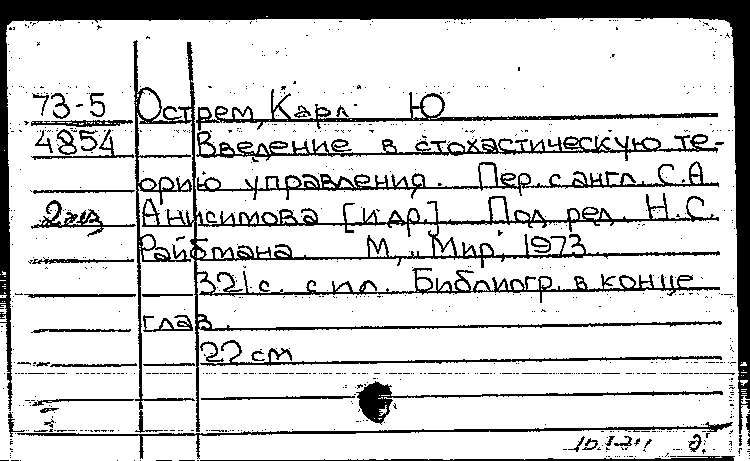 73-5 Острем, Карл Ю
4854 Введение в стохастическую те-
орию управления. Пер. с англ. С.А
2 экз Анисимова [и др.]. Под ред. Н.С.
Райбмана. М., „Мир", 1973
321 с. с ил. Библиогр. в конце
глав.
22 см